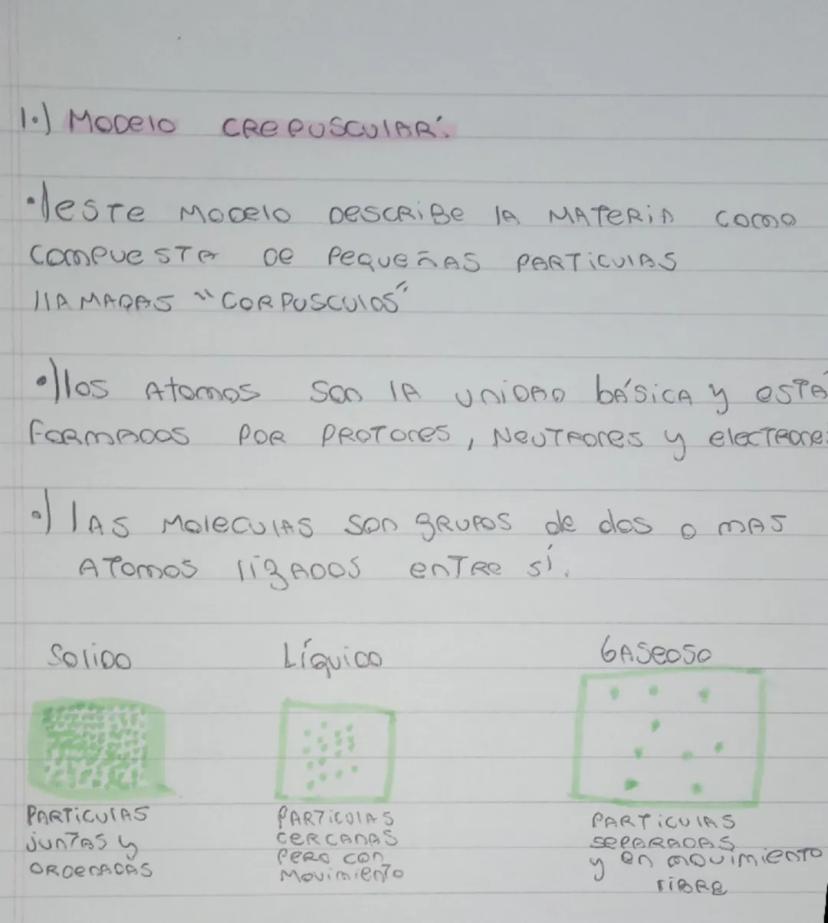 1.) MODELO CREPUSCULAR:
•) ESTE MODELO DESCRIBE LA MATERIA COMO
COMPUESTA DE PEQUEÑAS PARTICULAS
LLAMADAS "CORPUSCULOS"
•) LOS Atomos SON LA UNIDAD bÁSICA y ESTA
FORMADOS POR PROTORES, NEUTRORES y eLECTRORE
•) LAS MOLECULAS SON gRUPOS de dos o MAS
ATOMOS LIGADOS ENTRE SÍ.
SOLIDO LÍQUIDO GASEOSO
PARTICULAS
juNTAS y
ORDENADAS
PARTICULAS
CERCANAS
PERO CON
MOVIMIENTO
PARTICULAS
SEPARADAS
y EN MOVIMIENTO
LIBRE